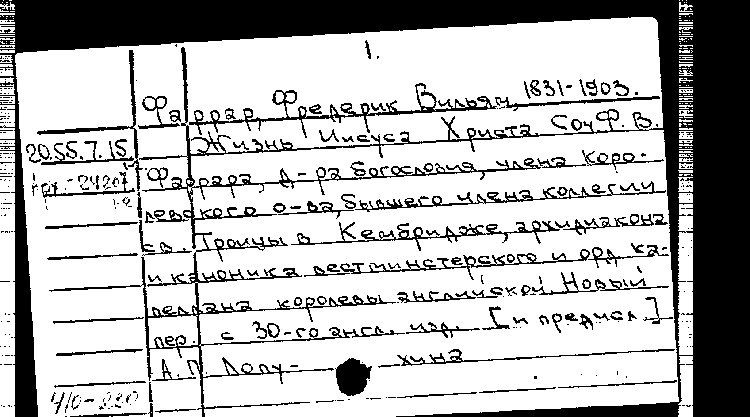 1.
Фаррар, Фредерик Вильям, 1831-1903.
Жизнь Иисуса Христа. Соч. Ф. В.
20.55.7.15
Фаррара, д-ра богословия, члена коро-
левского о-ва, бывшего члена коллегии
св. Троицы в Кембридже, архидиакона
и каноника вестминстерского и орд. ка-
пеллана королевы английской. Новый
пер. с 30-го англ. изд. [и предисл.]
А. П. Лопу- хина